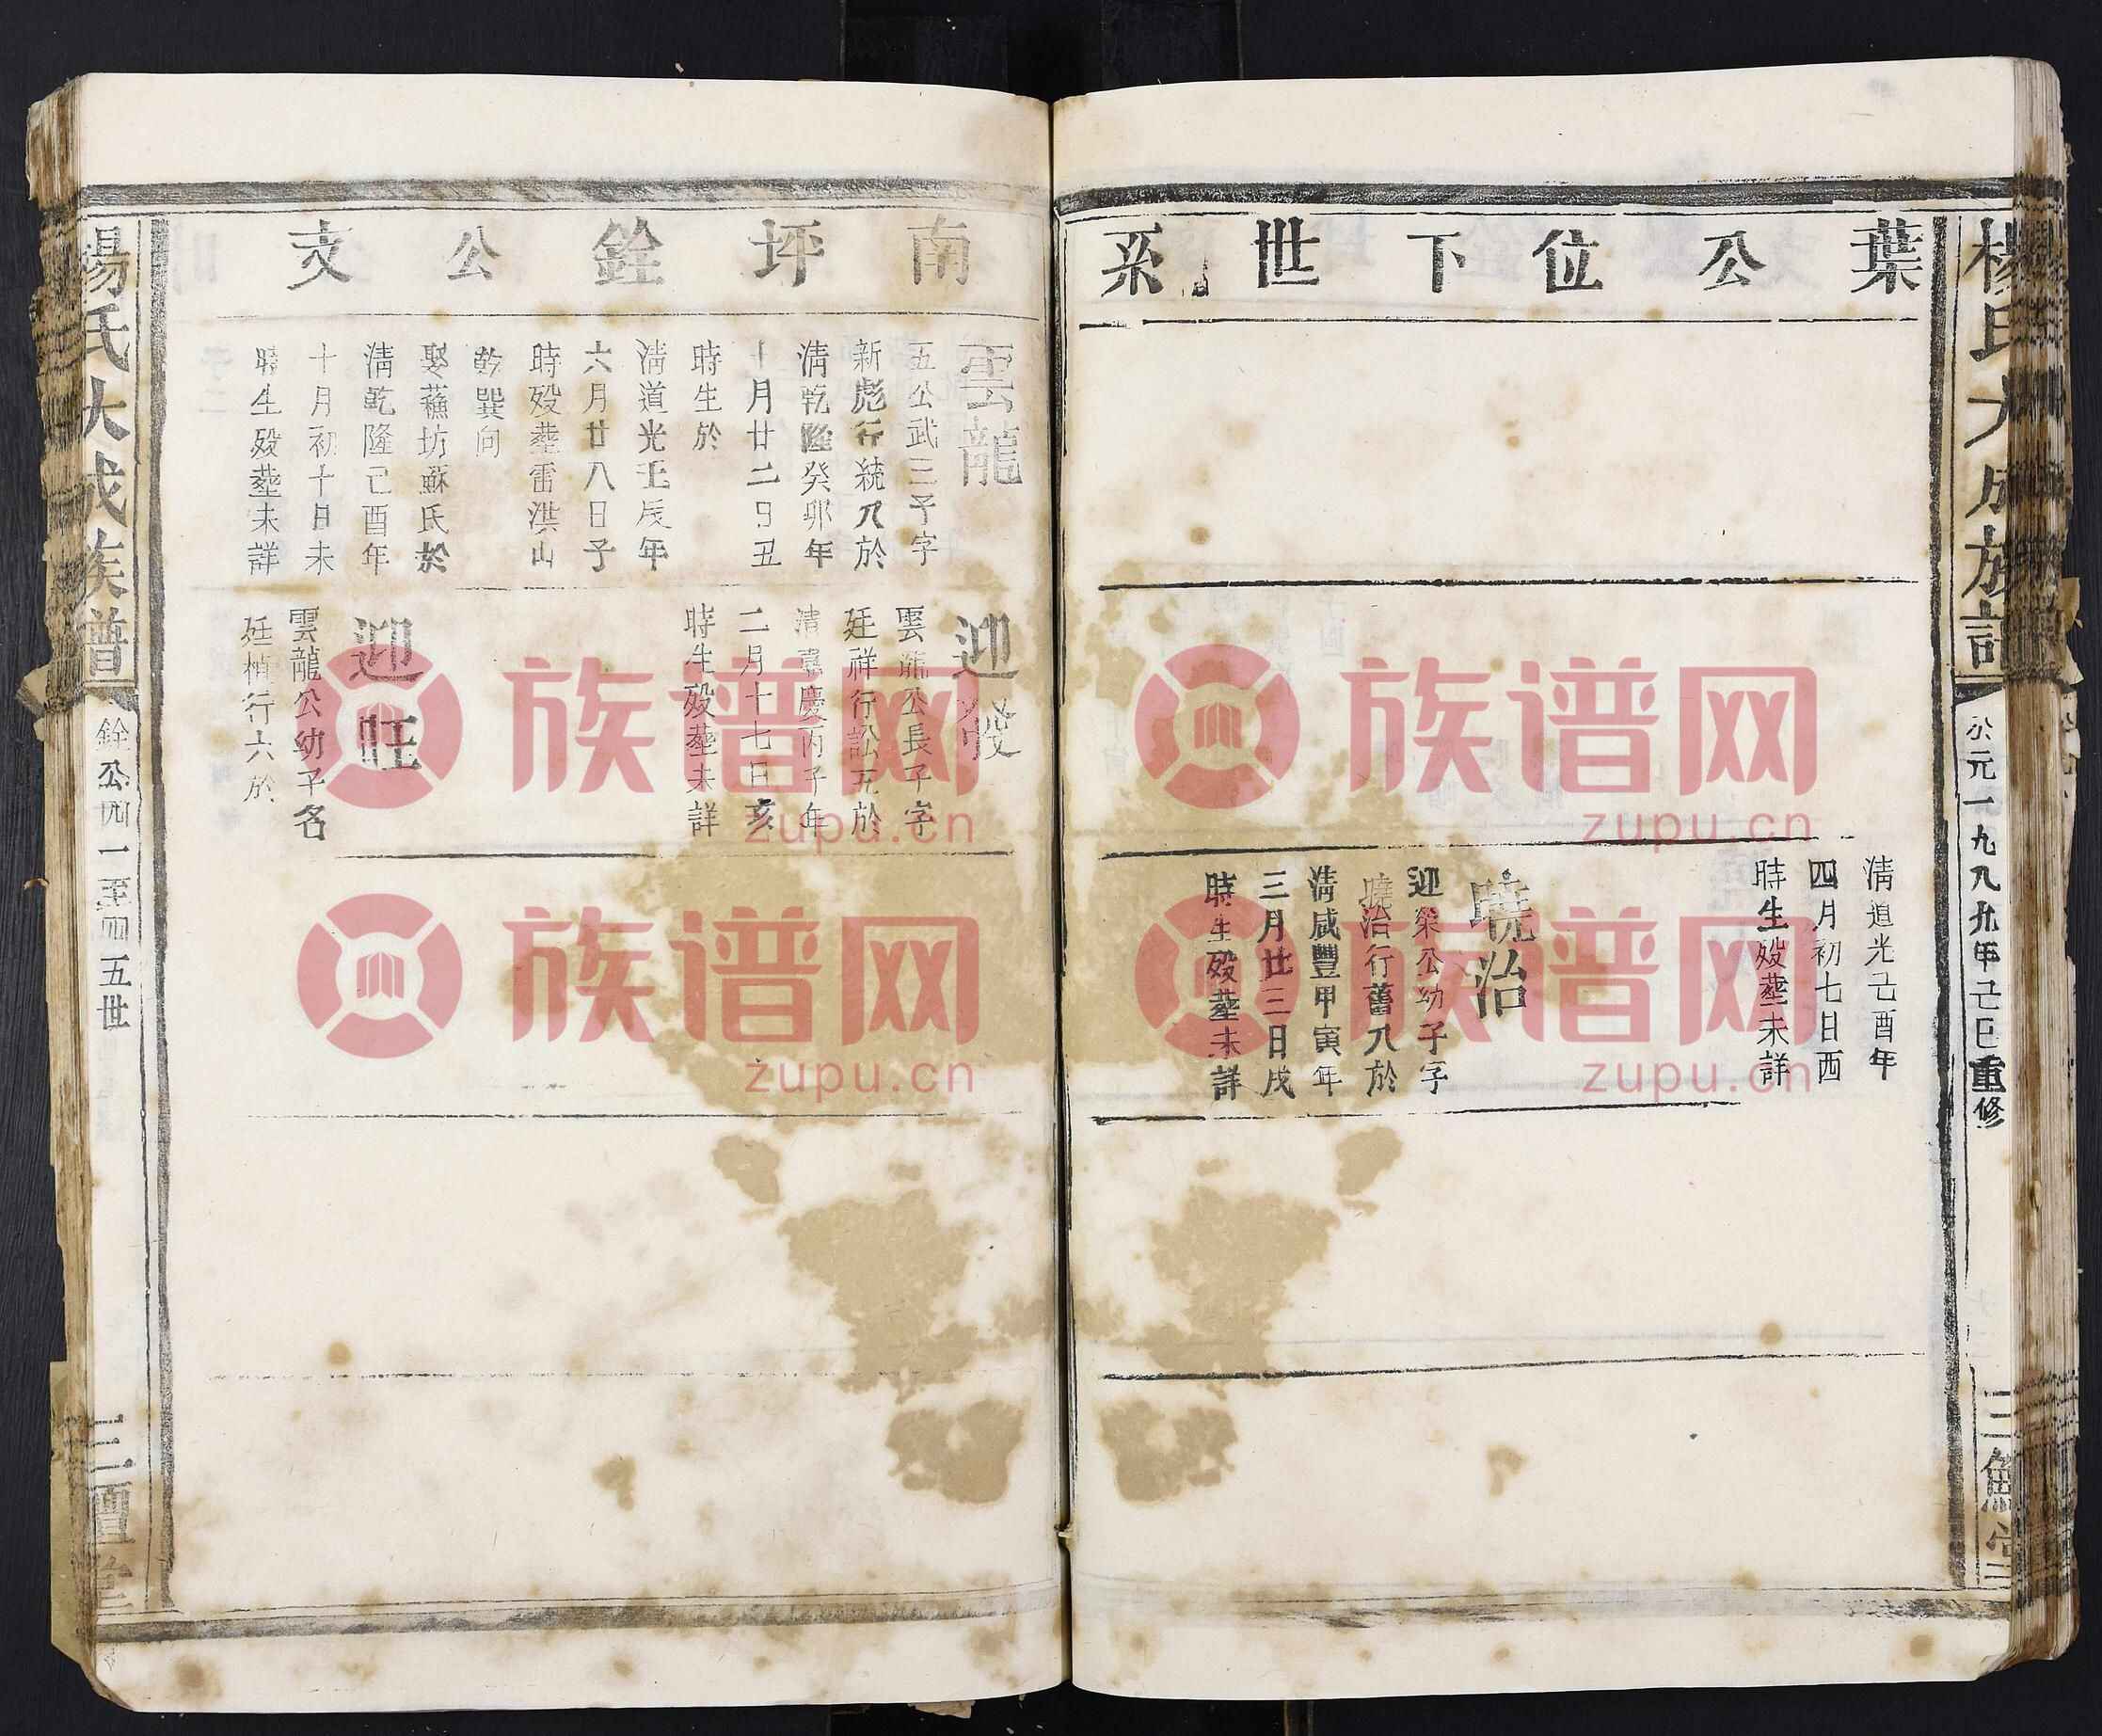 楊氏大成族譜
公元一九九九年己巳重修
三鱣堂
葉公位下世系
清道光己酉年
四月初七日酉
時生歿塟未詳
曉治
迎榮公幼子字
曉治行蕃八於
清咸豐甲寅年
三月廿三日戌
時生歿塟未詳
南坪銓公支
雲龍
五公武三子字
新彪行統八於
清乾隆癸卯年
十月廿二日丑
時生於
清道光壬辰年
六月廿八日子
時歿塟雷洪山
乾巽向
娶蘓坊蘇氏於
清乾隆己酉年
十月初十日未
時生歿塟未詳
迎發
雲龍公長子字
廷祥行訟五於
清嘉慶丙子年
二月十七日亥
時生歿塟未詳
迎旺
雲龍公幼子名
廷楨行六於
楊氏大成族譜
銓公四一至四五世
三鱣堂
族谱网
zupu.cn
族谱网
zupu.cn
族谱网
zupu.cn
族谱网
zupu.cn